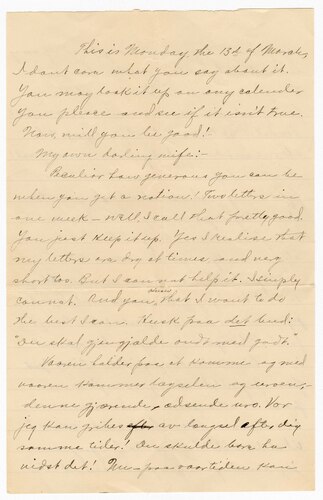 This is Monday the 13th of March,
I dont care what you say about it.
You may look it up on any calender
you please and see if it isn't true.
Now, will you be good!
My own darling wife:-
Peculiar how generous you can be
when you get a notion! Two letters in
one week - well, I call that pretty good.
You just keep it up. Yes I realise that
my letters are dry at times and very
short too. But I can not help it. I simply
cannot. And you know, that I want to do
the best I can. Husk paa det bud:
"Du skal gjengjælde ondt med godt."
Vaaren holder paa at komme og med
vaaren kommer længselen og
denne gjærende, uro. Hvor
jeg kan gribes af længsel efter dig
somme tider! Du skulde bare ha
vidst det! Nu paa vaartiden kan